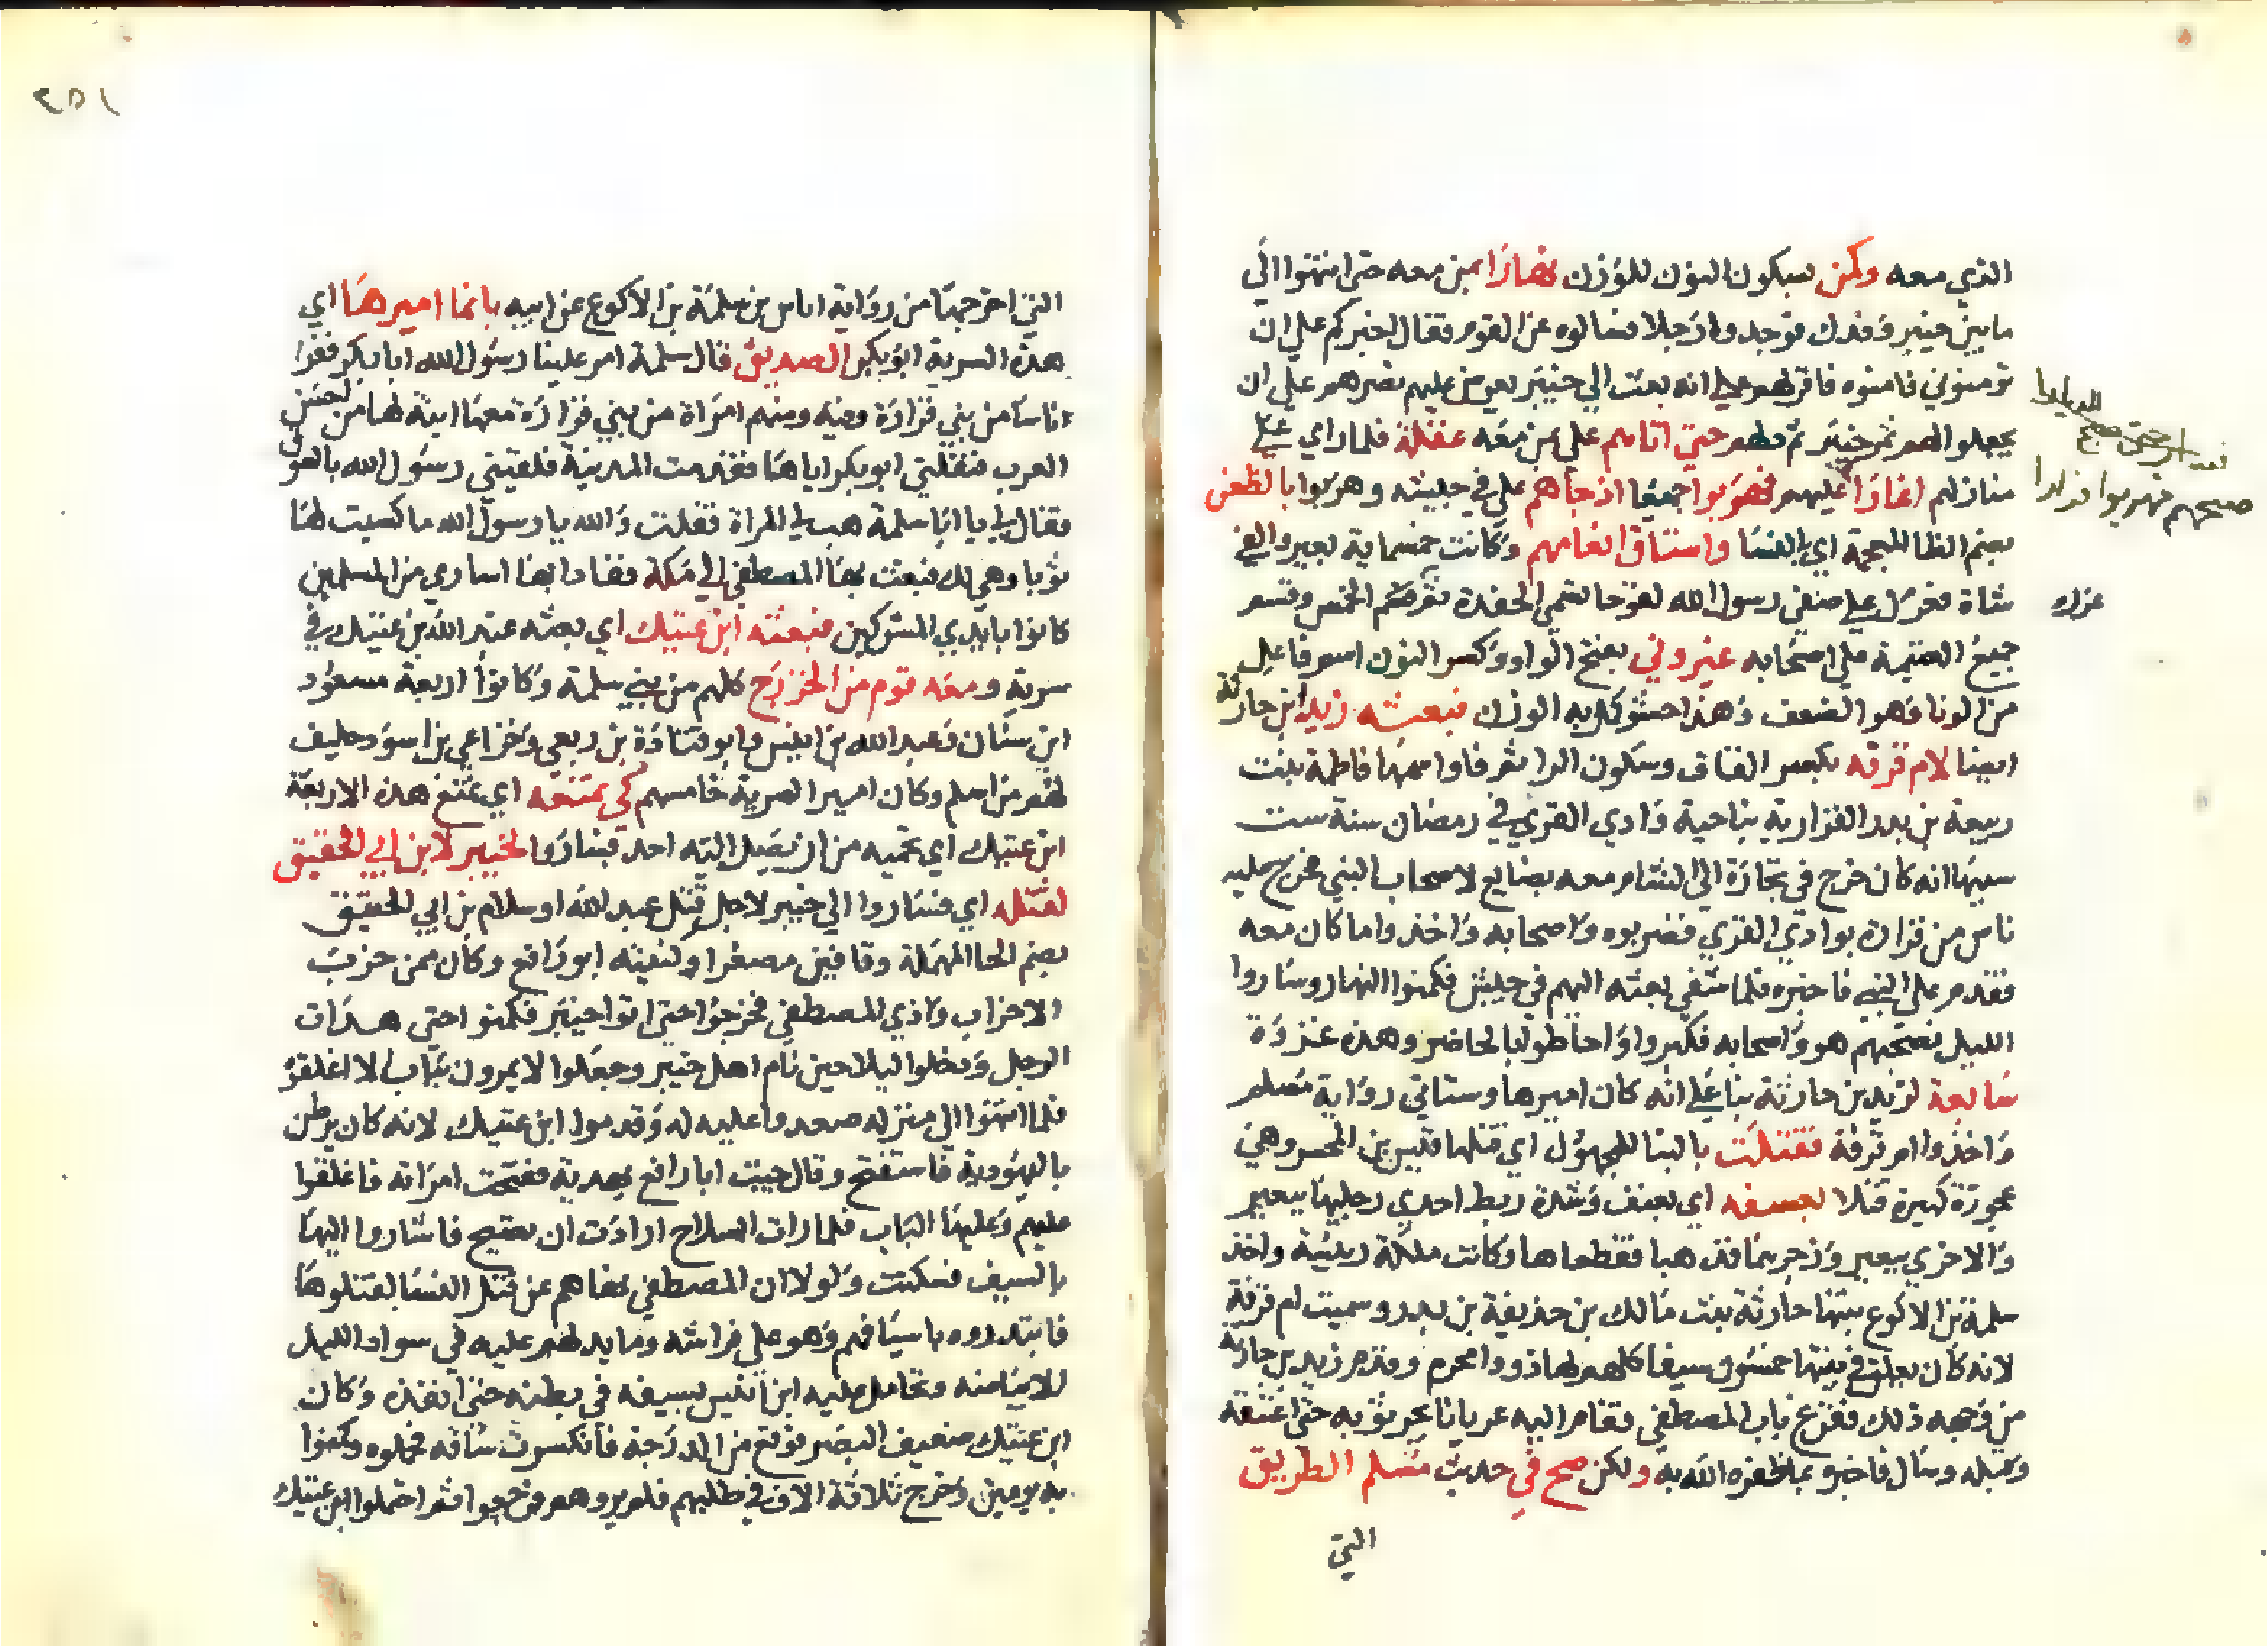 الذي معه وكمن بسكون النون للوزن نهارا بمن معه حتى انتهوا الى
ما بين خيبر وفدك فوجدوا رجلا فسالوه عن القوم فقال اخبركم على ان
تومنوني فامنوه فاقر لهم على انه بعث الى خيبر يعرض عليهم نصرهم على ان
يجعلوا لهم تمر خيبر ثم دلهم حتى اتاهم على بمن معه غفلة فلما راي علي
منازلهم اغارا عليهم فهربوا جمعا اذ جاهم علي في جيشه وهربوا بالظعن
بضم الظا المعجمة اي بالنسا واستاق انعامهم وكانت خمسماية بعير والفي
شاة فعزل علي صفي رسول الله لقوحا تسمى الحفدة ثم قسم الخمس وقسم
عزل
جميع الغنيمة على اصحابه غير وني بفتح الواو وكسر النون اسم فاعل
من الونا وهو الضعف وهذا حشو كمل به الوزن فبعثه زيد ابن حارثة
ايضا لام قرفه بكسر القاف وسكون الرا ثم فا واسمها فاطمة بنت
ربيعة بن بدر الفزارية بناحية وادي القرى في رمضان سنة ست
سببها انه كان خرج في تجارة الى الشام ومعه بضايع لاصحاب النبي فخرج عليه
ناس من فزارة بوادي القرى فضربوه واصحابه واخذوا ما كان معه
فقدم على النبي فاخبره فلما شفي بعثه اليهم في جيش فكمنوا النهار وساروا
الليل فصبحهم هو واصحابه فكبروا واحاطوا بالحاضر وهذه غزوة
سابعة لزيد بن حارثة بنا على انه كان اميرها وستاتي رواية مسلم
واخذوا ام قرفة فقتلت بالبنا للمجهول اي قتلها قيس بن المحسر وهي
عجوزة كبيرة قتلا بعسفه اي بعنف وشدة ربط احدي رجليها ببعير
والاخري ببعير وزجرهما فذهبا فقطعاها وكانت ملكة رييسة واخذ
سلمة بن الاكوع بنتها حارثة بنت مالك بن حذيفة بن بدر وسميت ام قرفة
لانه كان يعلق في بيتها خمسون سيفا كلهم لها ذووا محرم وقدم زيد بن حارثة
من وجهه ذلك فقرع باب المصطفى فقام اليه عريانا يجر ثوبه حتى اعتنقه
وقبله وسال فاخبره بما ظفره الله به ولكن صح في حديث مسلم الطريق
التي
التي اخرجها من رواية اياس بن سلمة بن الاكوع عن ابيه بانما اميرها اي
هذه السرية ابو بكر الصديق قال سلمة امر علينا رسول الله ابا بكر فغزا
اناسا من بني فزارة وفيه ومنهم امراة من بني فزارة معها ابنة لها من احسن
العرب فنفلني ابو بكر اياها فقدمت المدينة فلقيني رسول الله بالسوق
فقال لي يا ابا سلمة هب لي المراة فقلت والله يا رسول الله ما كشفت لها
ثوبا وهي لك فبعث بها المصطفى الى مكة ففادا بها اساري من المسلمين
كانوا بايدي المشركين فبعثه ابن عتيك اي بعثه عبد الله بن عتيك في
سرية ومعه قوم من الخزرج كلهم من بني سلمة وكانوا اربعة مسعود
ابن سنان وعبد الله بن انيس وابو قتادة بن ربعي وخزاعي بن اسود حليف
لهم من اسلم وكان امير السرية خامسهم كي تمنعه اي تمنع هذه الاربعة
ابن عتيك اي تحميه من ان يصل اليه احد فساروا لخيبر لابن ابي الحقيق
لقتله اي فساروا الى خيبر لاجل قتل عبد الله او سلام بن ابي الحقيق
بضم الحا المهملة وقافين مصغرا وكنيته ابو رافع وكان ممن حزب
الاحزاب واذي المصطفى فخرجوا حتى اتوا خيبر فكمنوا حتى هدات
الرجل ودخلوا ليلا حين نام اهل خيبر وجعلوا لا يمرون بباب الا اغلقوه
فلما انتهوا الى منزله صعدوا عليه له وقدموا ابن عتيك لانه كان يرطن
باليهودية فاستفتح وقال جيت ابا رافع بهدية ففتحت امراته فاغلقوا
عليهم وعليها الباب فلما رات السلاح ارادت ان تصيح فاشاروا اليها
بالسيف فسكتت ولولا ان المصطفى نهاهم عن قتل النسا لقتلوها
فابتدروه باسيافهم وهو على فراشه وما يدلهم عليه في سواد الليل
الا بياضه وتحامل عليه ابن انيس بسيفه في بطنه حتى انفذه وكان
ابن عتيك ضعيف البصر فوقع من الدرجة فانكسرت ساقه فحملوه وكمنوا
به يومين وخرج ثلاثة الاف في طلبهم فلم يروهم فرجعوا ثم احتملوا ابن عتيك